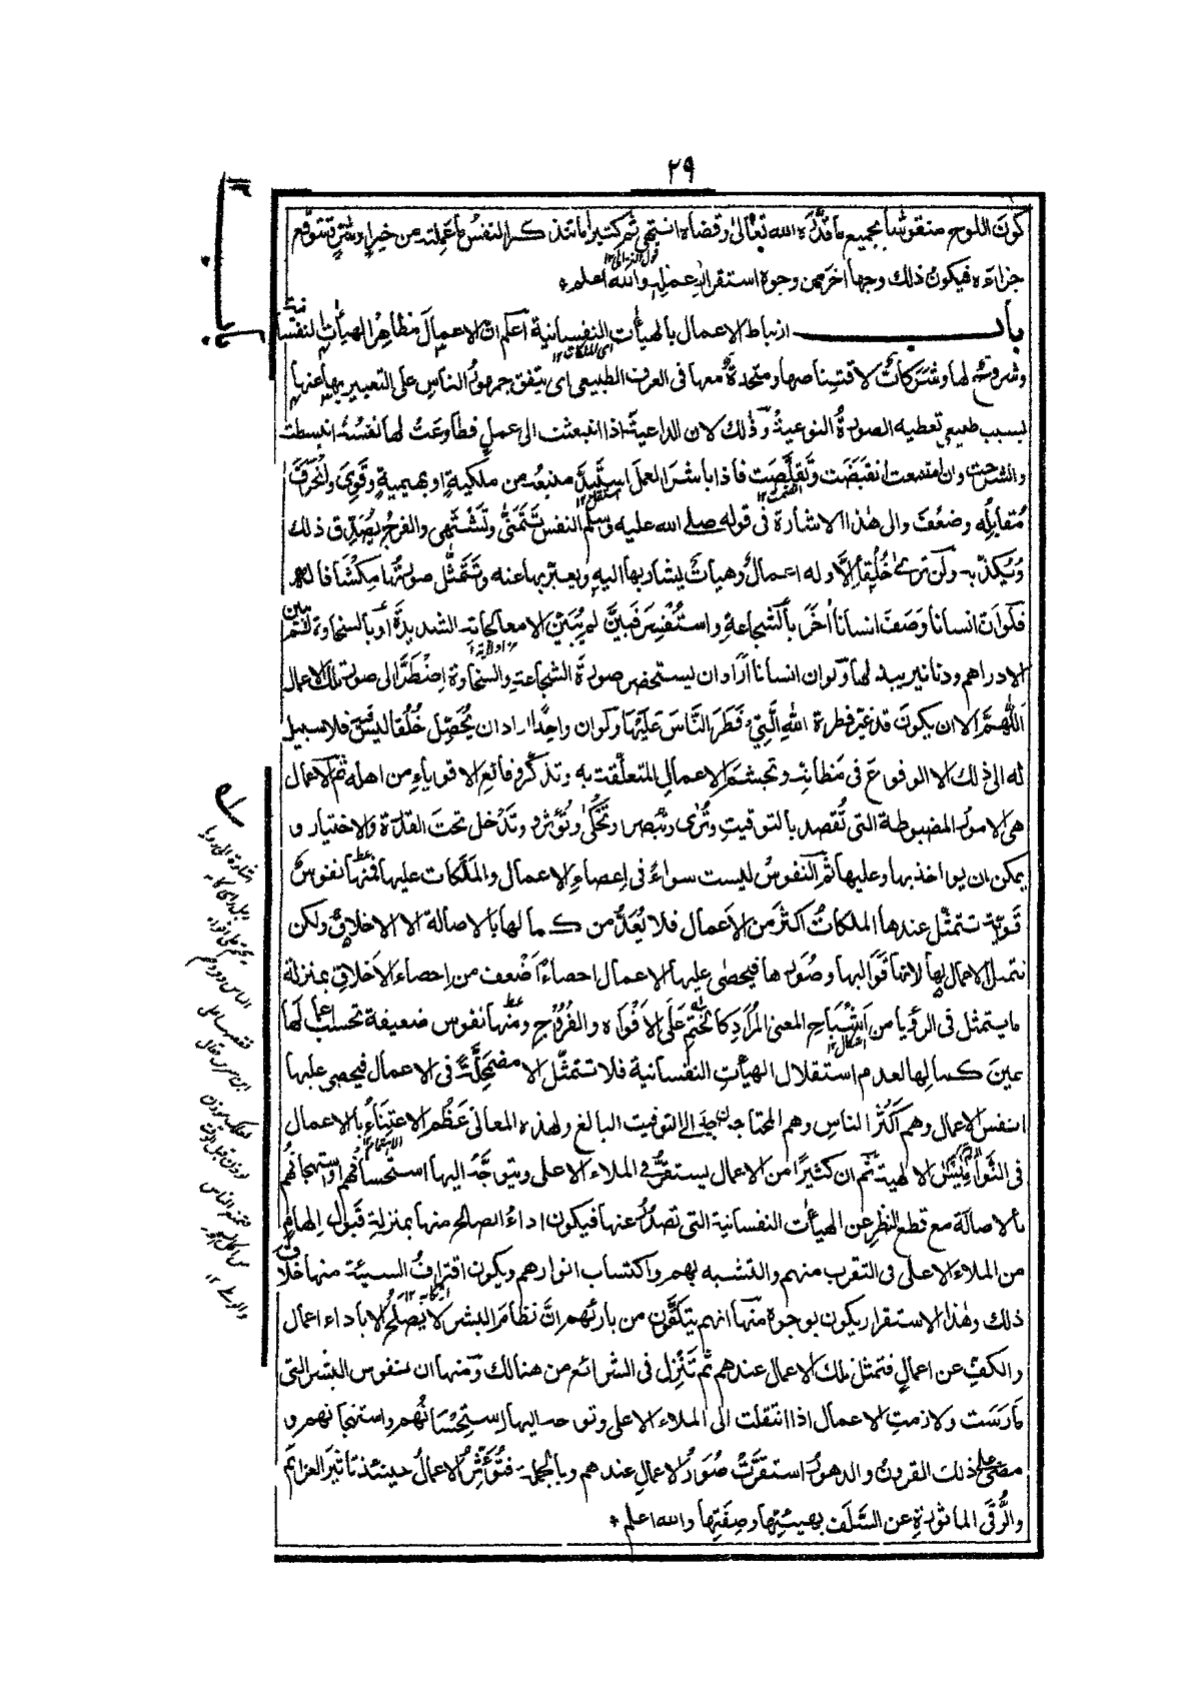 ٢٩
كون اللوح منقوشا بجميع ما قدّره الله تعالى وقضاه انتهى ثم كثيرا ما تتذكر النفس ما عملته من خير او شر وتتوقع
جزاءه فيكون ذلك وجها اخر من وجوه استقرار عمله والله اعلم *
باب ارتباط الاعمال بالهيئات النفسانية اعلم ان الاعمال مظاهر الهيئات النفسانية
وشروح لها وشركات لاقتناصها ومتحدة معها فى العرف الطبيعى اى يتفق جمهور الناس على التعبير بها عنها
بسبب طبيعى تعطيه الصورة النوعية وذلك لان الداعية اذا انبعثت الى عمل فطاوعت لها نفسه انبسطت
وانشرحت وان امتنعت انقبضت وتقلصت فاذا باشر العمل استبد منبعه من ملكية او بهيمية وقوى وانحرف
مقابله وضعف والى هذا الاشارة فى قوله صلى الله عليه وسلم النفس تتمنى وتشتهى والفرج يصدق ذلك
ويكذبه ولن ترى خلقا الا وله اعمال وهيئات يشار بها اليه ويعبر بها عنه وتتمثل صورتها مكشافا له
فلو ان انسانا وصف انسانا اخر بالشجاعة واستفسر فبين لم يبين الا معالجاته الشديدة او بالسخاوة لم يبين
الا دراهم ودنانير يبذلها ولو ان انسانا اراد ان يستحضر صورة الشجاعة والسخاوة اضطر الى صور تلك الاعمال
اللهم الا ان يكون قد غير فطرة الله التى فطر الناس عليها ولو ان واحدا اراد ان يحصل خلقا ليس فيه فلا سبيل
له الى ذلك الا الوقوع فى مظانه وتجشم الاعمال المتعلقة به وتذكر وقائع الاقوياء من اهله ثم الاعمال
هى الامور المضبوطة التى تقصد بالتوقيت وترى وتبصر وتحكى وتؤثر وتدخل تحت القدرة والاختيار و
يمكن ان يواخذ بها وعليها ثم النفوس ليست سواء فى احصاء الاعمال والملكات عليها فمنها نفوس
قوية تتمثل عندها الملكات اكثر من الاعمال فلا يعد من كمالها بالاصالة الا الاخلاق ولكن
تتمثل الاعمال لها لانها قوالبها وصورها فيحصى عليها الاعمال احصاء اضعف من احصاء الاخلاق بمنزلة
ما يتمثل فى الرؤيا من اشباح المعنى المراد كالختم على الافواه والفروج ومنها نفوس ضعيفة تحسب اعمالها
عين كمالها لعدم استقلال الهيئات النفسانية فلا تتمثل الا مضمحلة فى الاعمال فيحصى عليها
انفس الاعمال وهم اكثر الناس وهم المحتاجون جدا الى التوقيت البالغ ولهذه المعانى عظم الاعتناء بالاعمال
فى النواميس الالهية ثم ان كثيرا من الاعمال يستقر فى الملاء الاعلى ويتوجه اليها استحسانهم او استهجانهم
بالاصالة مع قطع النظر عن الهيئات النفسانية التى تصدر عنها فيكون اداء الصالح منها بمنزلة قبول الهام
من الملاء الاعلى فى التقرب منهم والتشبه بهم واكتساب انوارهم ويكون اقتراف السيئة منها خلاف
ذلك وهذا الاستقرار يكون بوجوه منها انهم يتلقون من بارئهم ان نظام البشر لا يصلح الا باداء اعمال
والكف عن اعمال فتمثل تلك الاعمال عندهم ثم تنزل فى الشرائع من هنالك ومنها ان نفوس البشر التى
مارست ولازمت الاعمال اذا انتقلت الى الملاء الاعلى وتوجه اليها استحسانهم واستهجانهم و
مضى على ذلك القرون والدهور استقرت صور الاعمال عندهم وبالجملة فتؤثر الاعمال حينئذ تاثير العزائم
والرقى الماثورة عن السلف بهيئتها وصفتها والله اعلم *